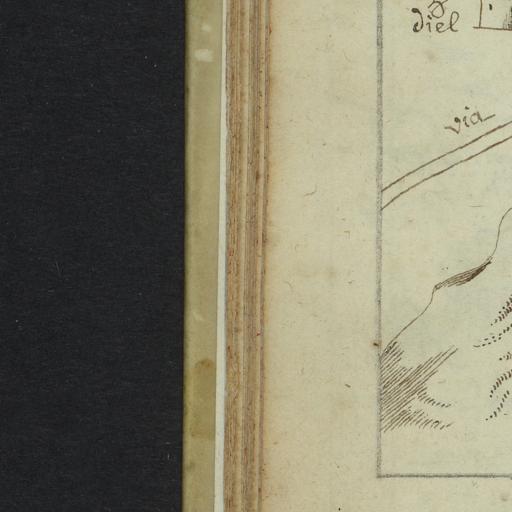 diel
via